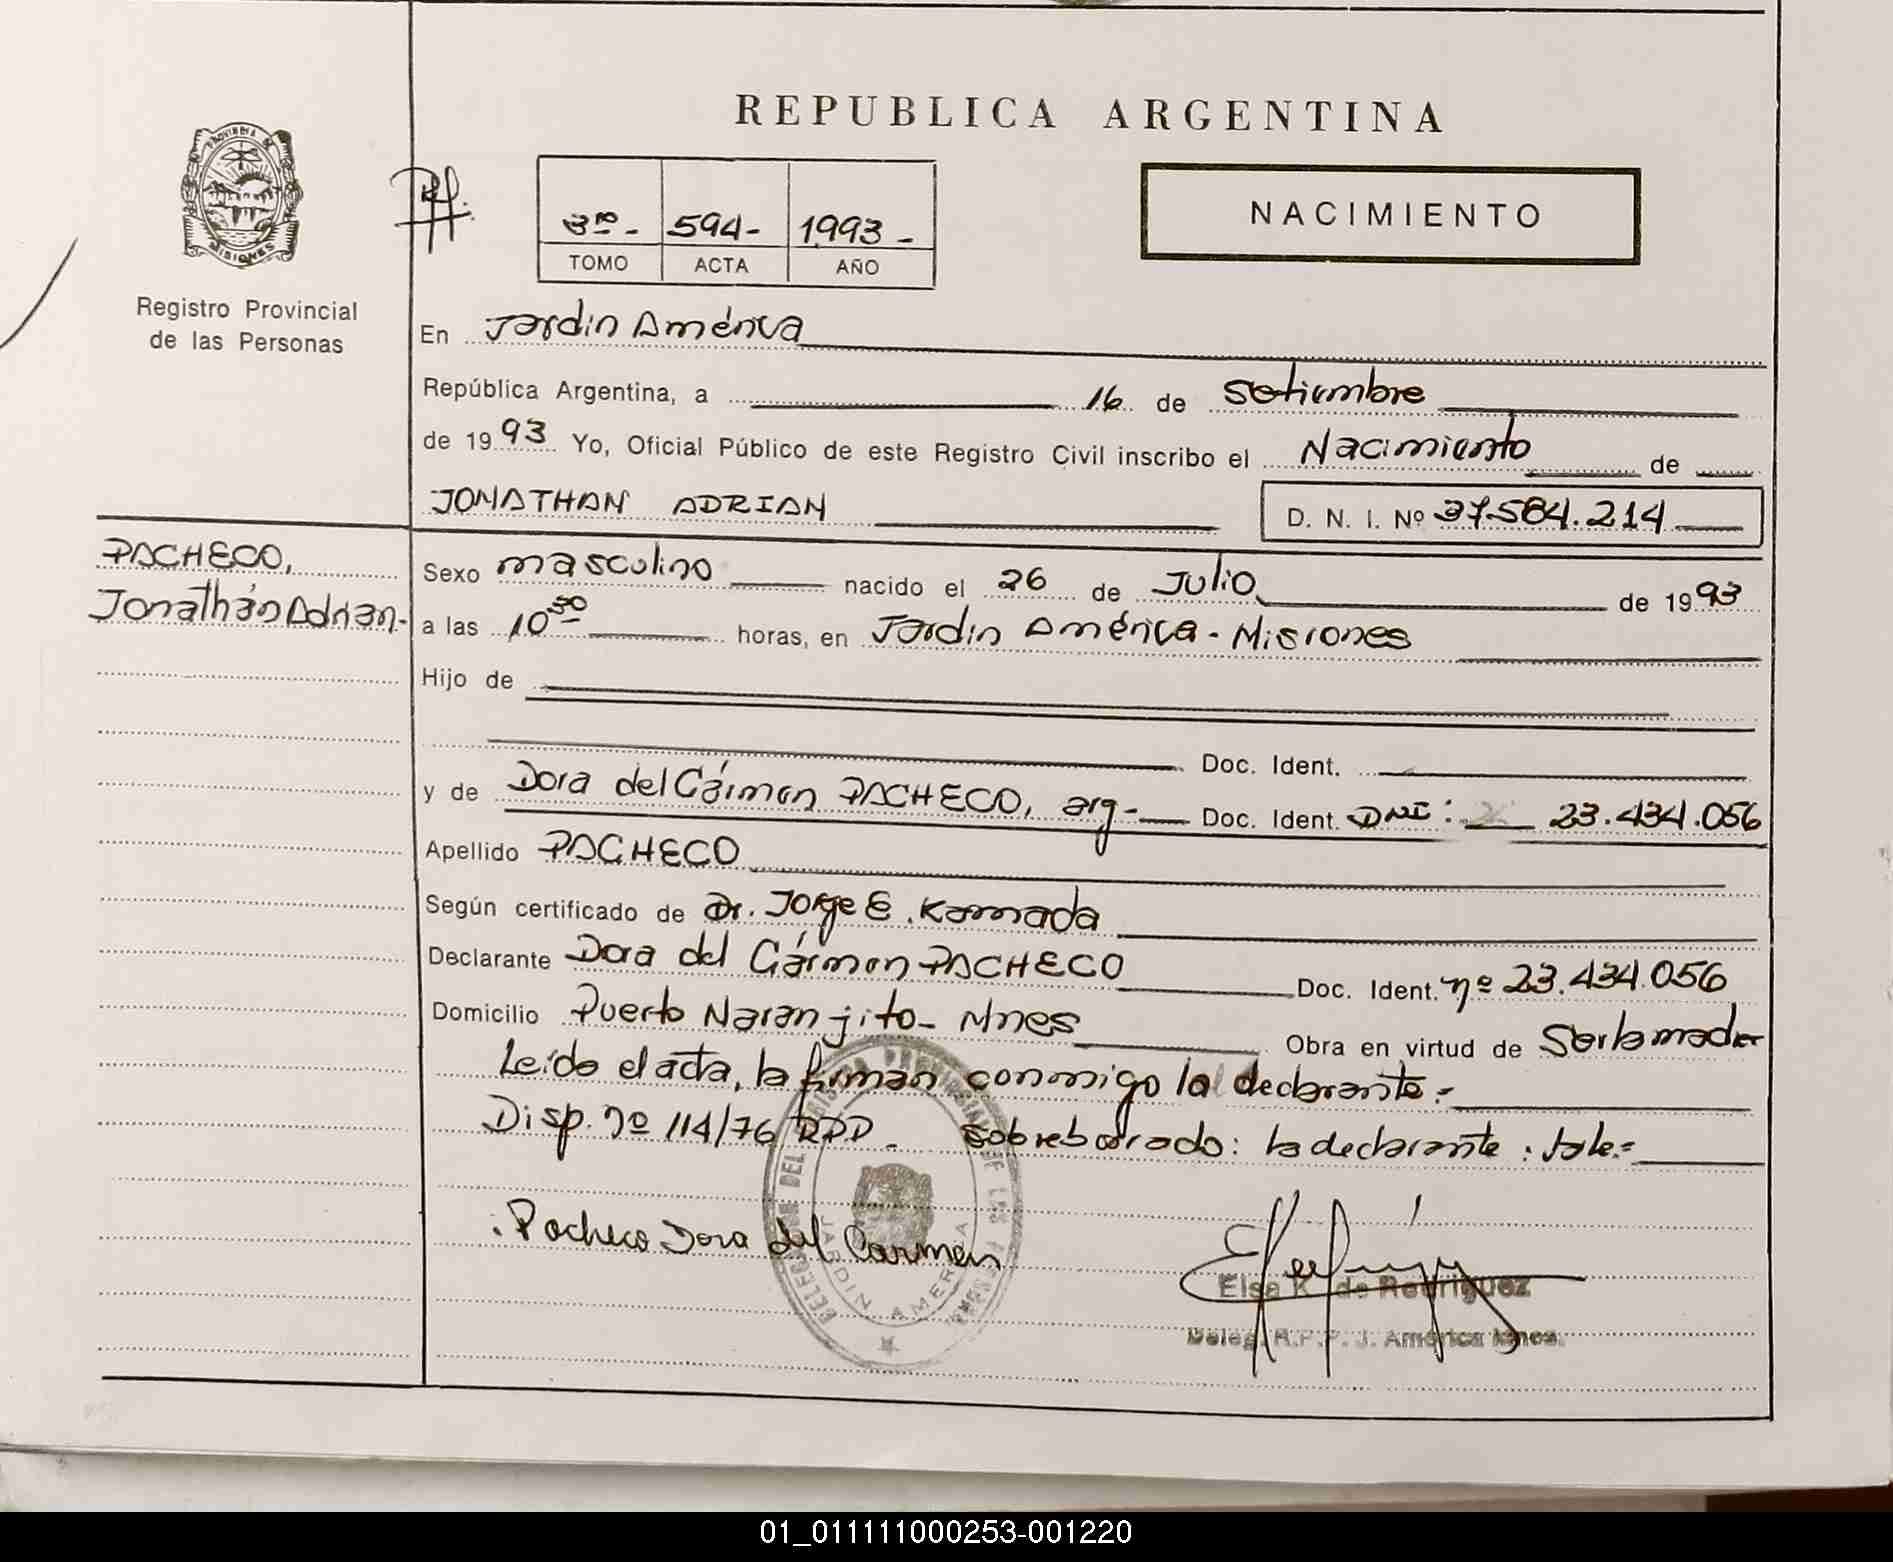 REPUBLICA ARGENTINA
PROVINCIA DE MISIONES
Registro Provincial
de las Personas
3ro - 594 - 1993 -
TOMO ACTA AÑO
NACIMIENTO
En Jardín América
República Argentina, a 16 de Setiembre
de 1993 Yo, Oficial Público de este Registro Civil inscribo el Nacimiento de
JONATHAN ADRIAN D. N. I. Nº 37.584.214
PACHECO,
Jonathán Adrian.-
Sexo masculino nacido el 26 de Julio de 1993
a las 10 30 horas, en Jardín América - Misiones
Hijo de
Doc. Ident.
y de Dora del Cármen PACHECO, arg- Doc. Ident. DNI: 23.434.056
Apellido PACHECO
Según certificado de Dr. Jorge E. Kamada
Declarante Dora del Cármen PACHECO Doc. Ident. nº 23.434.056
Domicilio Puerto Naranjito - Mnes Obra en virtud de Ser la madre
Leída el acta, la firman conmigo la declarante.-
Disp. nº 114/76 RPP - Sobreborrado: la declarante: Vale.-
Pacheco Dora del Carmen
JARDIN AMERICA
Elsa K. de Rodriguez
Deleg. R.P.P. J. América Mnes.
01_011111000253-001220